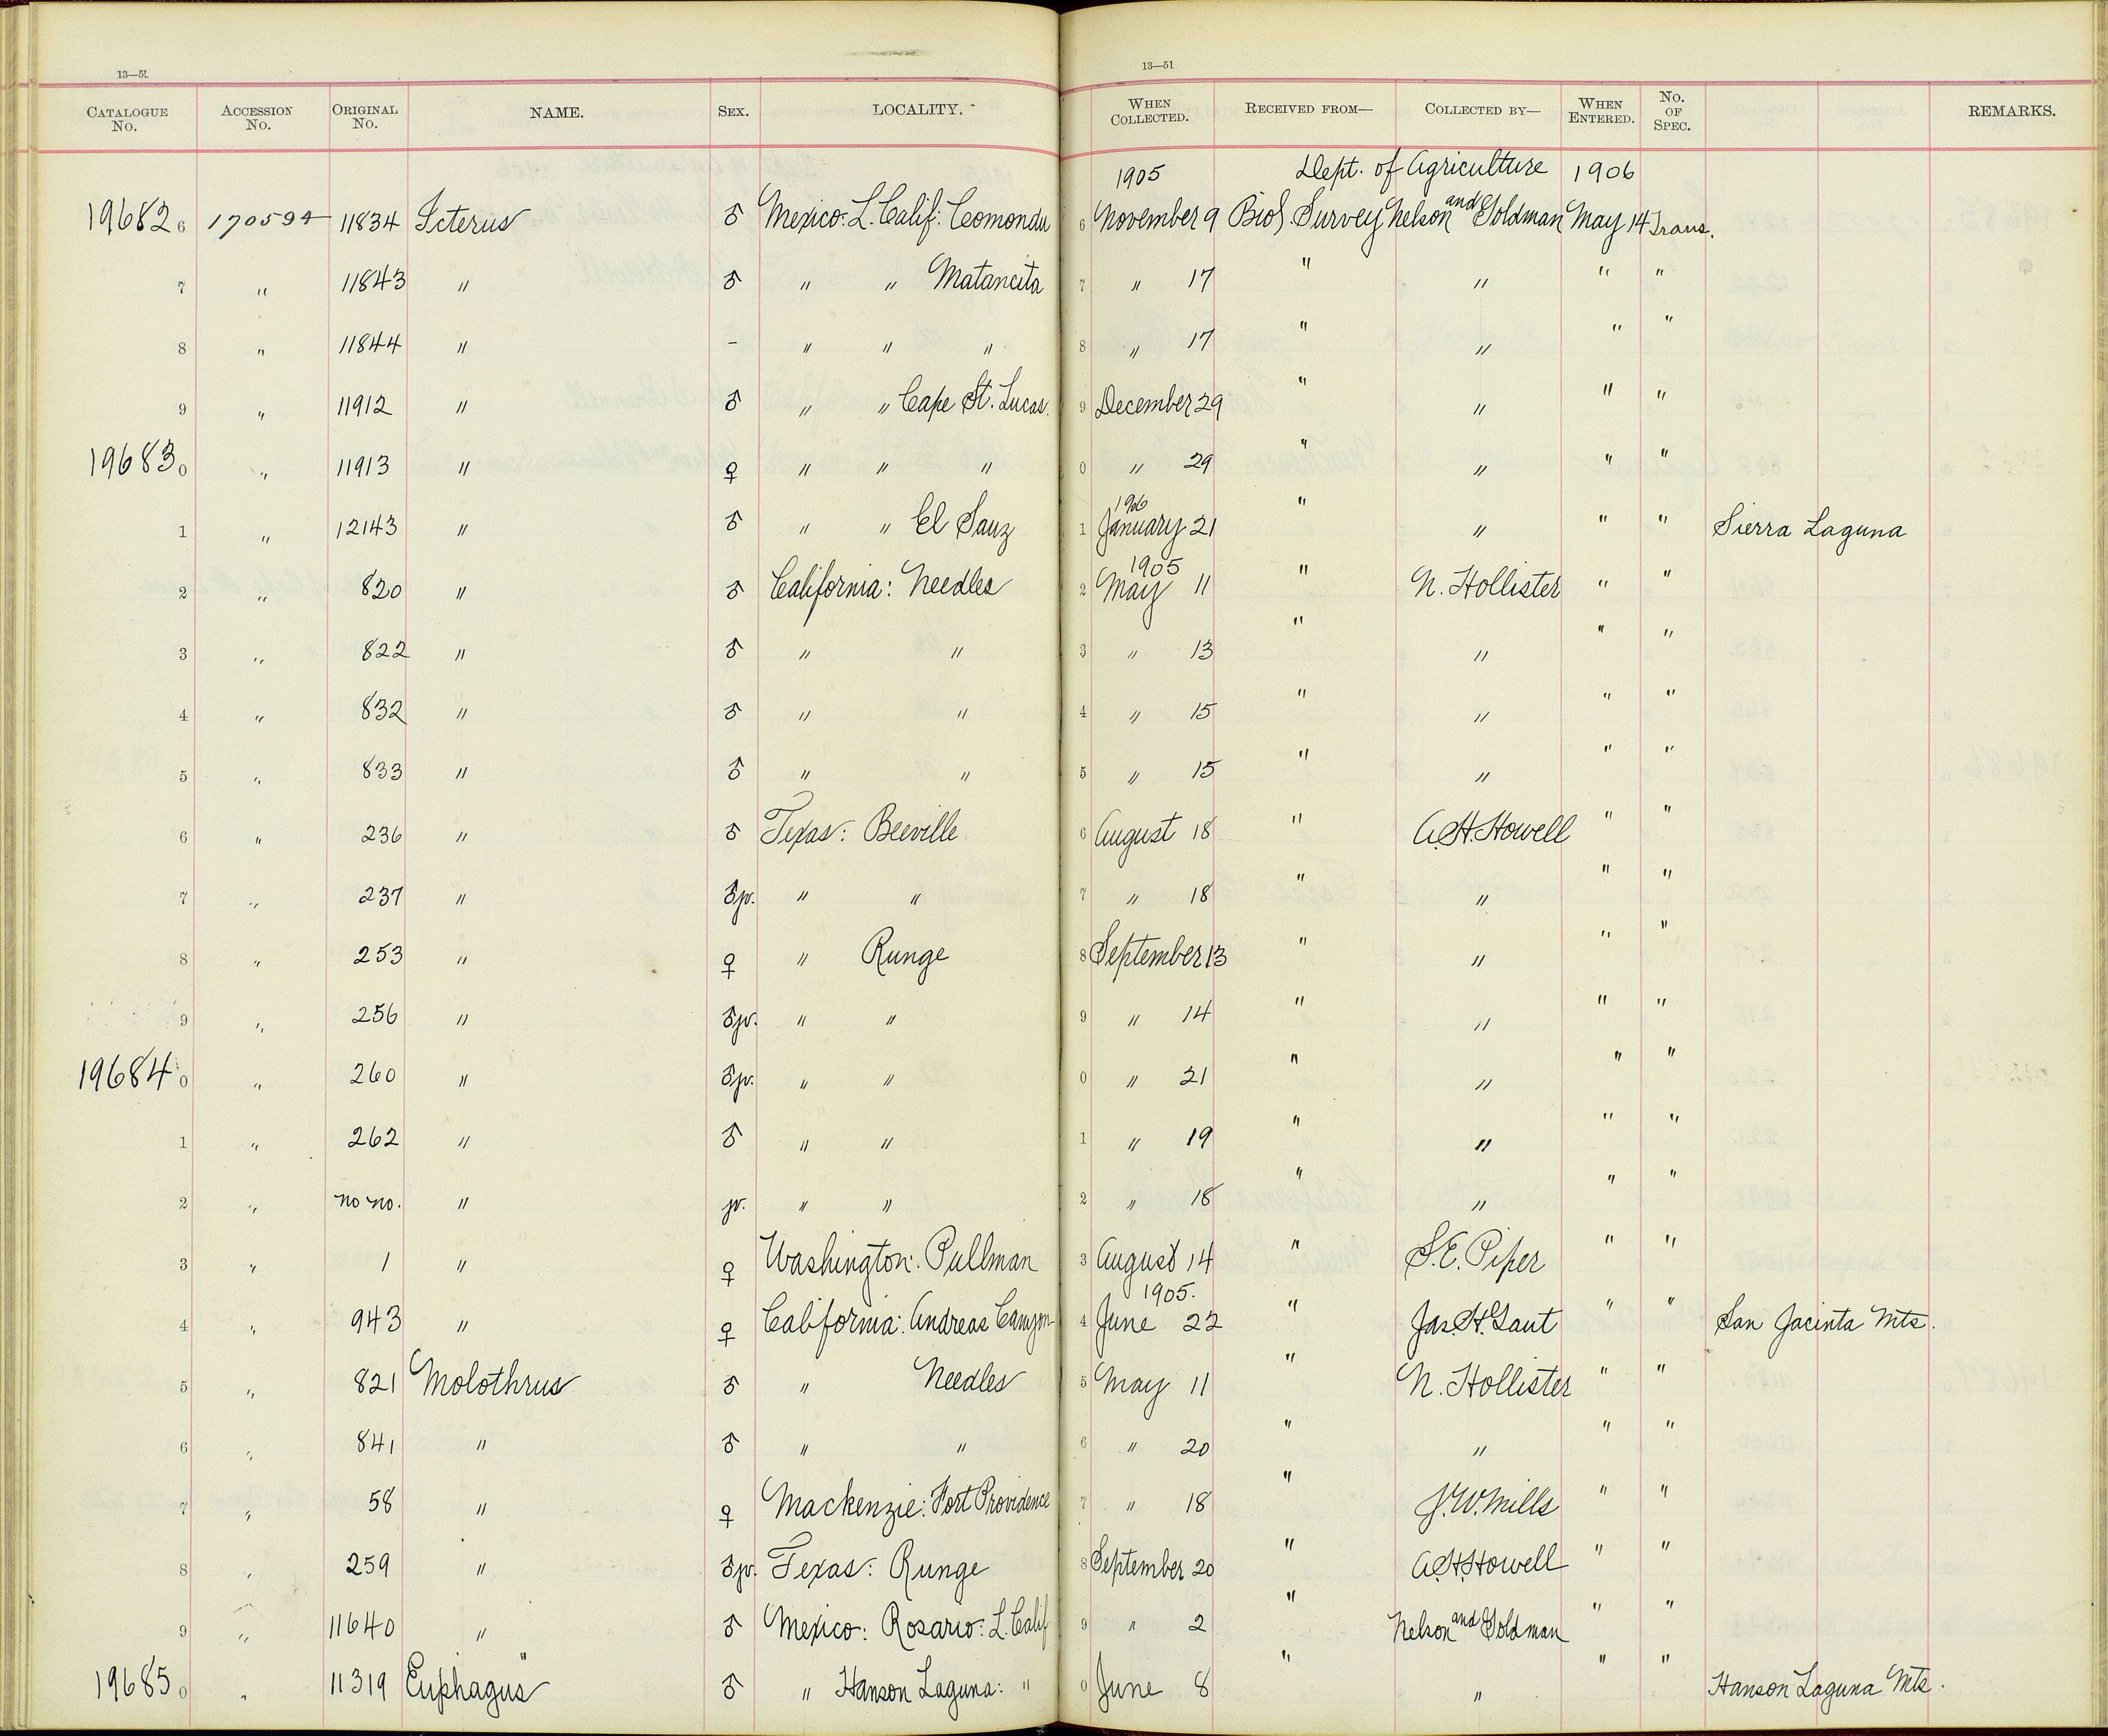 13—51 13—51
CATALOGUE No. ACCESSION No. ORIGINAL No. NAME. SEX. LOCALITY. WHEN COLLECTED. RECEIVED FROM— COLLECTED BY— WHEN ENTERED. No. OF SPEC. REMARKS.
1905 Dept. of Agriculture 1906
19682 6 170594 11834 Icterus ♂ Mexico: L. Calif: Comondu 6 November 9 Biol. Survey Nelson and Goldman May 14 Trans.
7 " 11843 " ♂ " " Matancita 7 " 17 " " " "
8 " 11844 " - " " " 8 " 17 " " " "
9 " 11912 " ♂ " " Cape St. Lucas 9 December 29 " " " "
19683 0 " 11913 " ♀ " " " 0 " 29 " " " "
1906
1 " 12143 " ♂ " " El Sauz 1 January 21 " " " " Sierra Laguna
1905
2 " 820 " ♂ California: Needles 2 May 11 " N. Hollister " "
3 " 822 " ♂ " " 3 " 13 " " " "
4 " 832 " ♂ " " 4 " 15 " " " "
5 " 833 " ♂ " " 5 " 15 " " " "
6 " 236 " ♂ Texas: Beeville 6 August 18 " A.H. Howell " "
7 " 237 " ♂ jv. " " 7 " 18 " " " "
8 " 253 " ♀ " Runge 8 September 13 " " " "
9 " 256 " ♂ jv. " " 9 " 14 " " " "
19684 0 " 260 " ♂ jv. " " 0 " 21 " " " "
1 " 262 " ♂ " " 1 " 19 " " " "
2 " no no. " jv. " " 2 " 18 " " " "
3 " 1 " ♀ Washington: Pullman 3 August 14 " S.E. Piper " "
1905.
4 " 943 " ♀ California: Andreas Canyon 4 June 22 " Jas. H. Gaut " " San Jacinta Mts.
5 " 821 Molothrus ♂ " Needles 5 May 11 " N. Hollister " "
6 " 841 " ♂ " " 6 " 20 " " " "
7 " 58 " ♀ Mackenzie: Fort Providence 7 " 18 " J.W. Mills " "
8 " 259 " ♂ jv. Texas: Runge 8 September 20 " A.H. Howell " "
9 " 11640 " ♂ Mexico: Rosario: L. Calif 9 " 2 " Nelson and Goldman " "
19685 0 " 11319 Euphagus " ♂ " Hanson Laguna: " 0 June 8 " " " " Hanson Laguna Mts.